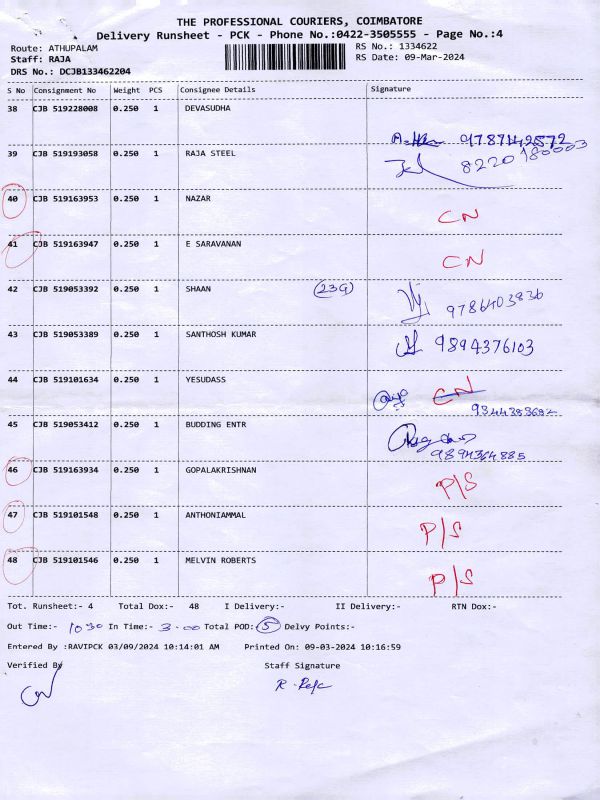 THE PROFESSIONAL COURIERS, COIMBATORE
Delivery Runsheet - PCK - Phone No.:0422-3505555 - Page No.:4
Route: ATHUPALAM RS No.: 1334622
Staff: RAJA RS Date: 09-Mar-2024
DRS No.: DCJB133462204
S No Consignment No Weight PCS Consignee Details Signature
38 CJB 519228008 0.250 1 DEVASUDHA
9787142572
39 CJB 519193058 0.250 1 RAJA STEEL 8220180003
40 CJB 519163953 0.250 1 NAZAR CN
41 CJB 519163947 0.250 1 E SARAVANAN CN
42 CJB 519053392 0.250 1 SHAAN (23G) 9786403836
43 CJB 519053389 0.250 1 SANTHOSH KUMAR 9894376103
44 CJB 519101634 0.250 1 YESUDASS CN
45 CJB 519053412 0.250 1 BUDDING ENTR
9894364885
46 CJB 519163934 0.250 1 GOPALAKRISHNAN P/S
47 CJB 519101548 0.250 1 ANTHONIAMMAL P/S
48 CJB 519101546 0.250 1 MELVIN ROBERTS P/S
Tot. Runsheet:- 4 Total Dox:- 48 I Delivery:- II Delivery:- RTN Dox:-
Out Time:- 10 30 In Time:- 3-00 Total POD: 5 Delvy Points:-
Entered By :RAVIPCK 03/09/2024 10:14:01 AM Printed On: 09-03-2024 10:16:59
Verified By Staff Signature